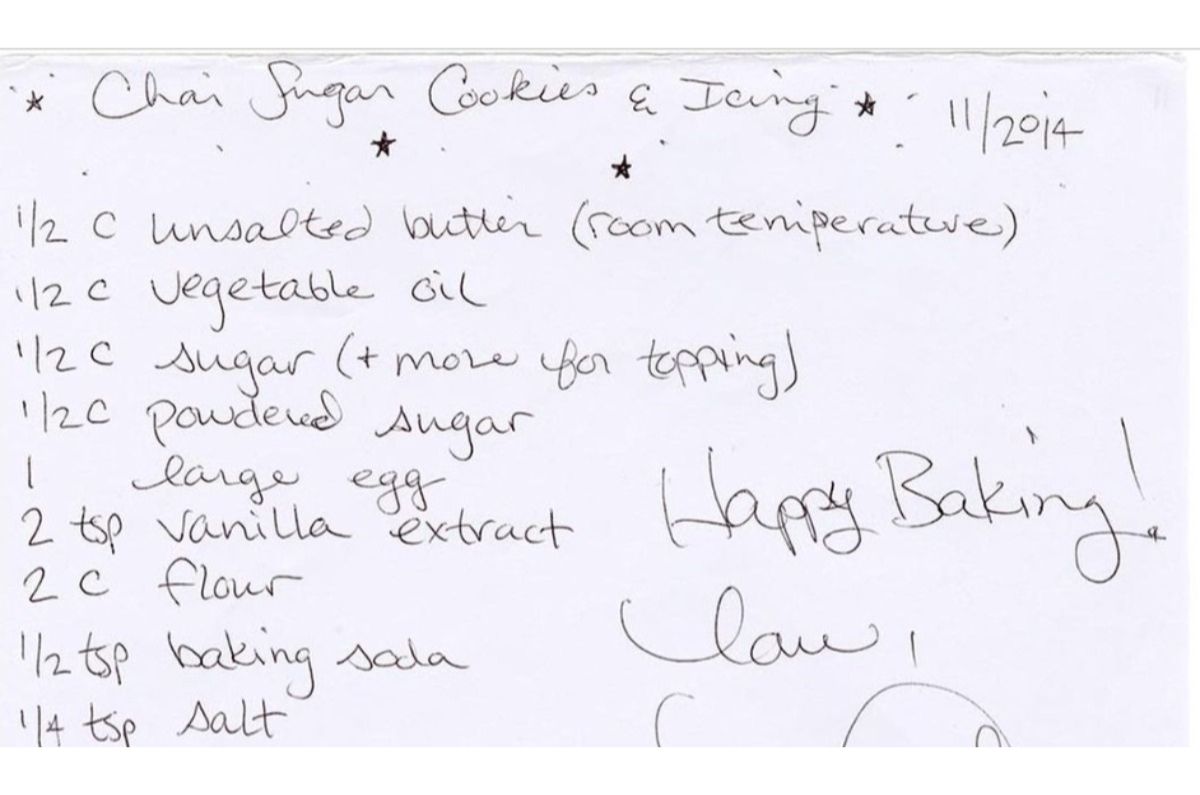 * Chai Sugar Cookies & Icing * 11/2014
1/2 C unsalted butter (room temperature)
1/2 C vegetable oil
1/2 C sugar (+ more for topping)
1/2 C powdered sugar
1 large egg
2 tsp vanilla extract
2 C flour
1/2 tsp baking soda
1/4 tsp salt
Happy Baking!